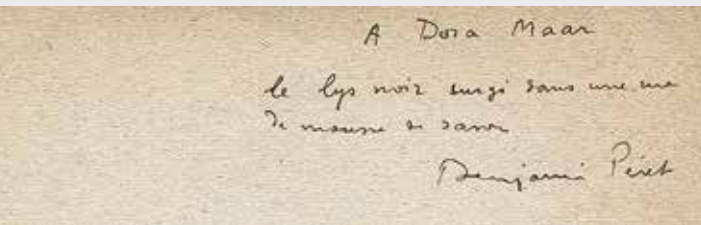 A Dora Maar
le lys noir surgi dans une rue
de mousse de savon
Benjamin Péret